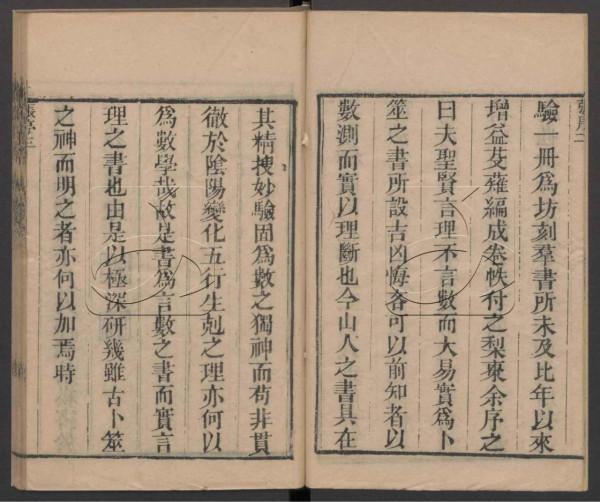 張序二
驗一冊爲坊刻羣書所未及比年以來
增益芟薙編成卷帙付之梨棗余序之
曰夫聖賢言理不言數而大易實爲卜
筮之書所設吉凶悔吝可以前知者以
數測而實以理斷也今山人之書具在
其精搜妙驗固爲數之獨神而苟非貫
徹於陰陽變化五行生剋之理亦何以
爲數學哉故是書爲言數之書而實言
理之書也由是以極深研幾雖古卜筮
之神而明之者亦何以加焉時
張序三